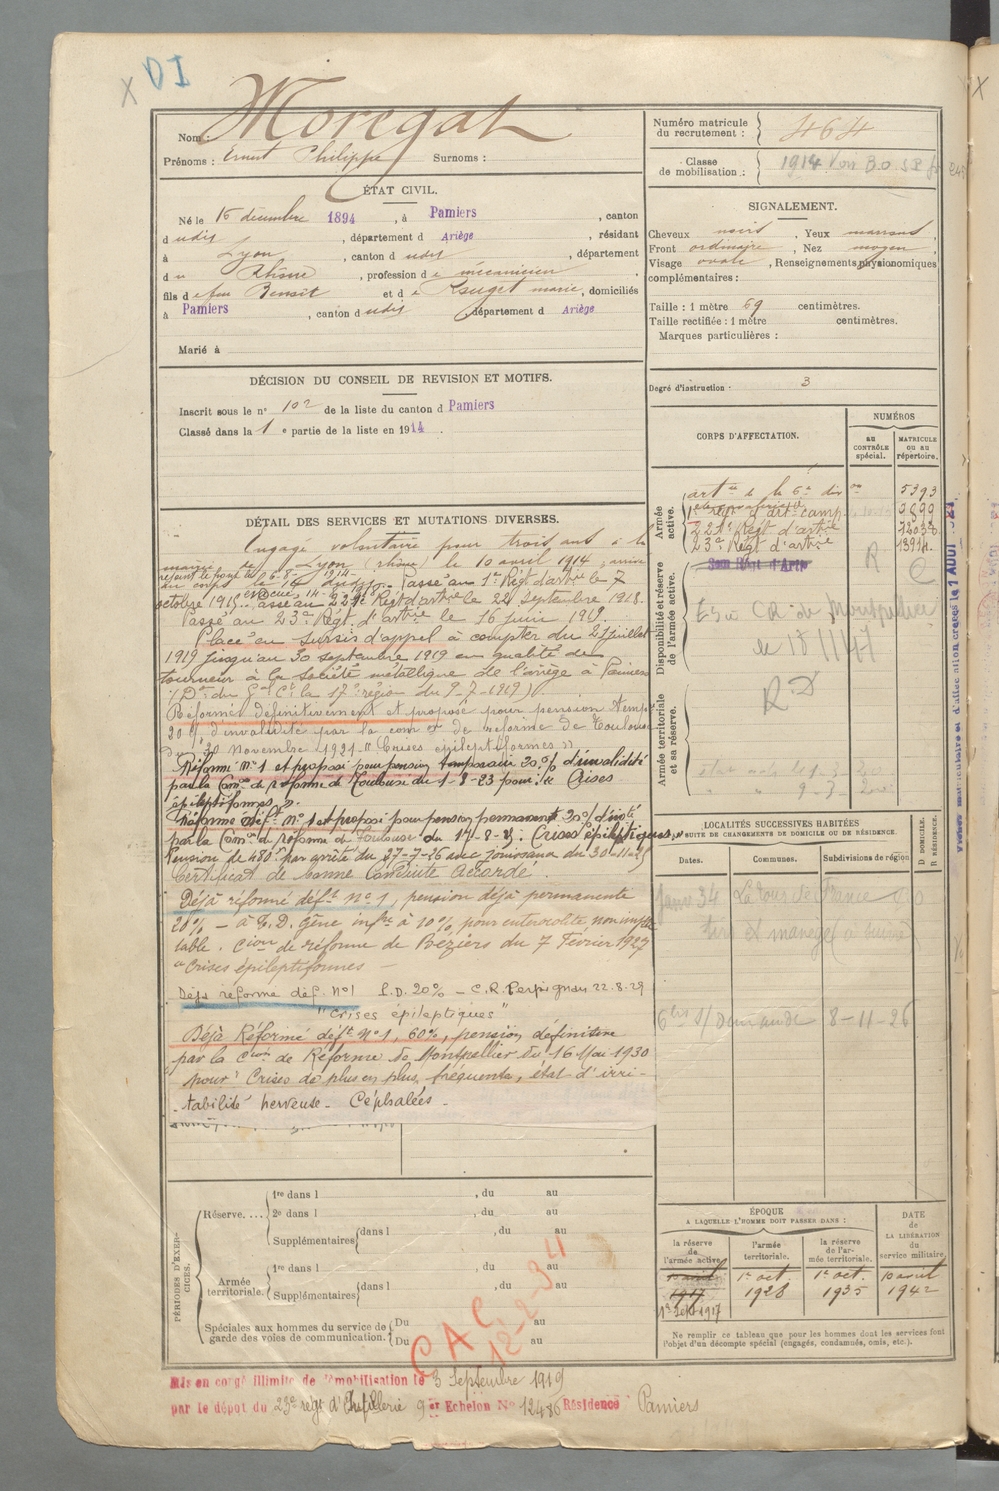 X DI
Nom : Moregat
Prénoms : Ernest Philippe Surnoms :
ÉTAT CIVIL.
Né le 15 décembre 1894, à Pamiers, canton
d udit, département d Ariège, résidant
à Lyon, canton d udit, département
d u Rhône, profession de mécanicien,
fils de feu Benoît et de Rouget marie, domiciliés
à Pamiers, canton d udit, département d Ariège
Marié à
DÉCISION DU CONSEIL DE REVISION ET MOTIFS.
Inscrit sous le n° 102 de la liste du canton d Pamiers
Classé dans la 1 e partie de la liste en 1914.
DÉTAIL DES SERVICES ET MUTATIONS DIVERSES.
Engagé volontaire pour trois ans à la
mairie de Lyon (Rhône) le 10 avril 1914, arrivé
au corps le 14 dudit. Passé au 1er Régt d'artrie le 7
octobre 1915. Passé au 221e Régt d'artrie le 22 septembre 1918.
Passé au 23e Régt d'artrie le 16 juin 1919.
Placé en sursis d'appel à compter du 21 juillet
1919 jusqu'au 30 septembre 1919 en qualité de
tourneur à la Société métallique de l'ariège à Pamiers
(Don du Gal Ct la 17e région du 9-7-1919)
Réformé définitivement et proposé pour pension temp
20 % d'invalidité par la com on de réforme de Toulouse
du 30 Novembre 1921 "Crises épileptiformes"
Réformé N° 1 et proposé pour pension temporaire 20 % d'invalidité
par la Com. de réforme de Toulouse du 1-8-23 pour : "Crises
épileptiformes".
Réformé déft n° 1 et proposé pour pension permanente 20 % d'inv té
par la Com. de réforme de Toulouse du 17-8-25. Crises épileptiques,"
Pension de 480f par arrêté du 27-7-26 avec jouissance du 30-11-25
Certificat de bonne conduite accordé.
Déjà réformé déft n° 1, pension déjà permanente
20% – à T.D. gêne infre à 10%, pour entérocolite non impu
table. Cion de réforme de Béziers du 7 Février 1927
"Crises épileptiformes –
Déjà réformé déf. N°1 P.D. 20% – C.R. Perpignan 22.8.29
"Crises épileptiques"
Déjà Réformé déft N° 1, 60%, pension définitive
par la Cion de Réforme de Montpellier du 16 Mai 1930
pour "Crises de plus en plus fréquentes, état d'irri-
-tabilité nerveuse – Céphalées –
PÉRIODES D'EXERCICES.
Réserve.... 1re dans l , du au
2e dans l , du au
Supplémentaires dans l , du au
Armée territoriale. 1re dans l , du au
Supplémentaires dans l , du au
Spéciales aux hommes du service de garde des voies de communication. Du au
Du au
CAC. 12-2-34
Mis en congé illimité de démobilisation le 3 Septembre 1919
par le dépôt du 23e régt d'Artillerie 9 er Echelon N° 12486 Résidence Pamiers
Numéro matricule du recrutement : 464
Classe de mobilisation : 1914 Voir B.O.
SIGNALEMENT.
Cheveux noirs, Yeux marrons,
Front ordinaire, Nez moyen
Visage ovale, Renseignements physionomiques
complémentaires :
Taille : 1 mètre 69 centimètres.
Taille rectifiée : 1 mètre centimètres.
Marques particulières :
Degré d'instruction : 3
CORPS D'AFFECTATION.
NUMÉROS
AU CONTRÔLE spécial.
MATRICULE OU AU répertoire.
Armée active.
artie de la 6e don 5393
1er Régt d'art camp
221e Régt d'artrie 12038
23e Régt d'artrie
Disponibilité et réserve de l'armée active.
R C
CR de Montpellier
R D
Armée territoriale et sa réserve.
LOCALITÉS SUCCESSIVES HABITÉES
PAR SUITE DE CHANGEMENTS DE DOMICILE OU DE RÉSIDENCE.
Dates. Communes. Subdivisions de région D DOMICILE. R RÉSIDENCE.
Janv 34 Latour de France
tirs et manège
8-11-26
ÉPOQUE
A LAQUELLE L'HOMME DOIT PASSER DANS :
la réserve de l'armée active
l'armée territoriale.
la réserve de l'armée territoriale.
DATE de LA LIBÉRATION du service militaire.
10 avril 1917
1er oct. 1928
1er oct. 1935
10 avril 1942
Ne remplir ce tableau que pour les hommes dont les services font
l'objet d'un décompte spécial (engagés, condamnés, omis, etc.).